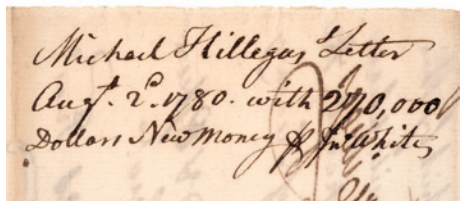 Michael Hillegas Letter
Augt. 2d. 1780. with 270,000
Dollars New Money ⅌ Jno White